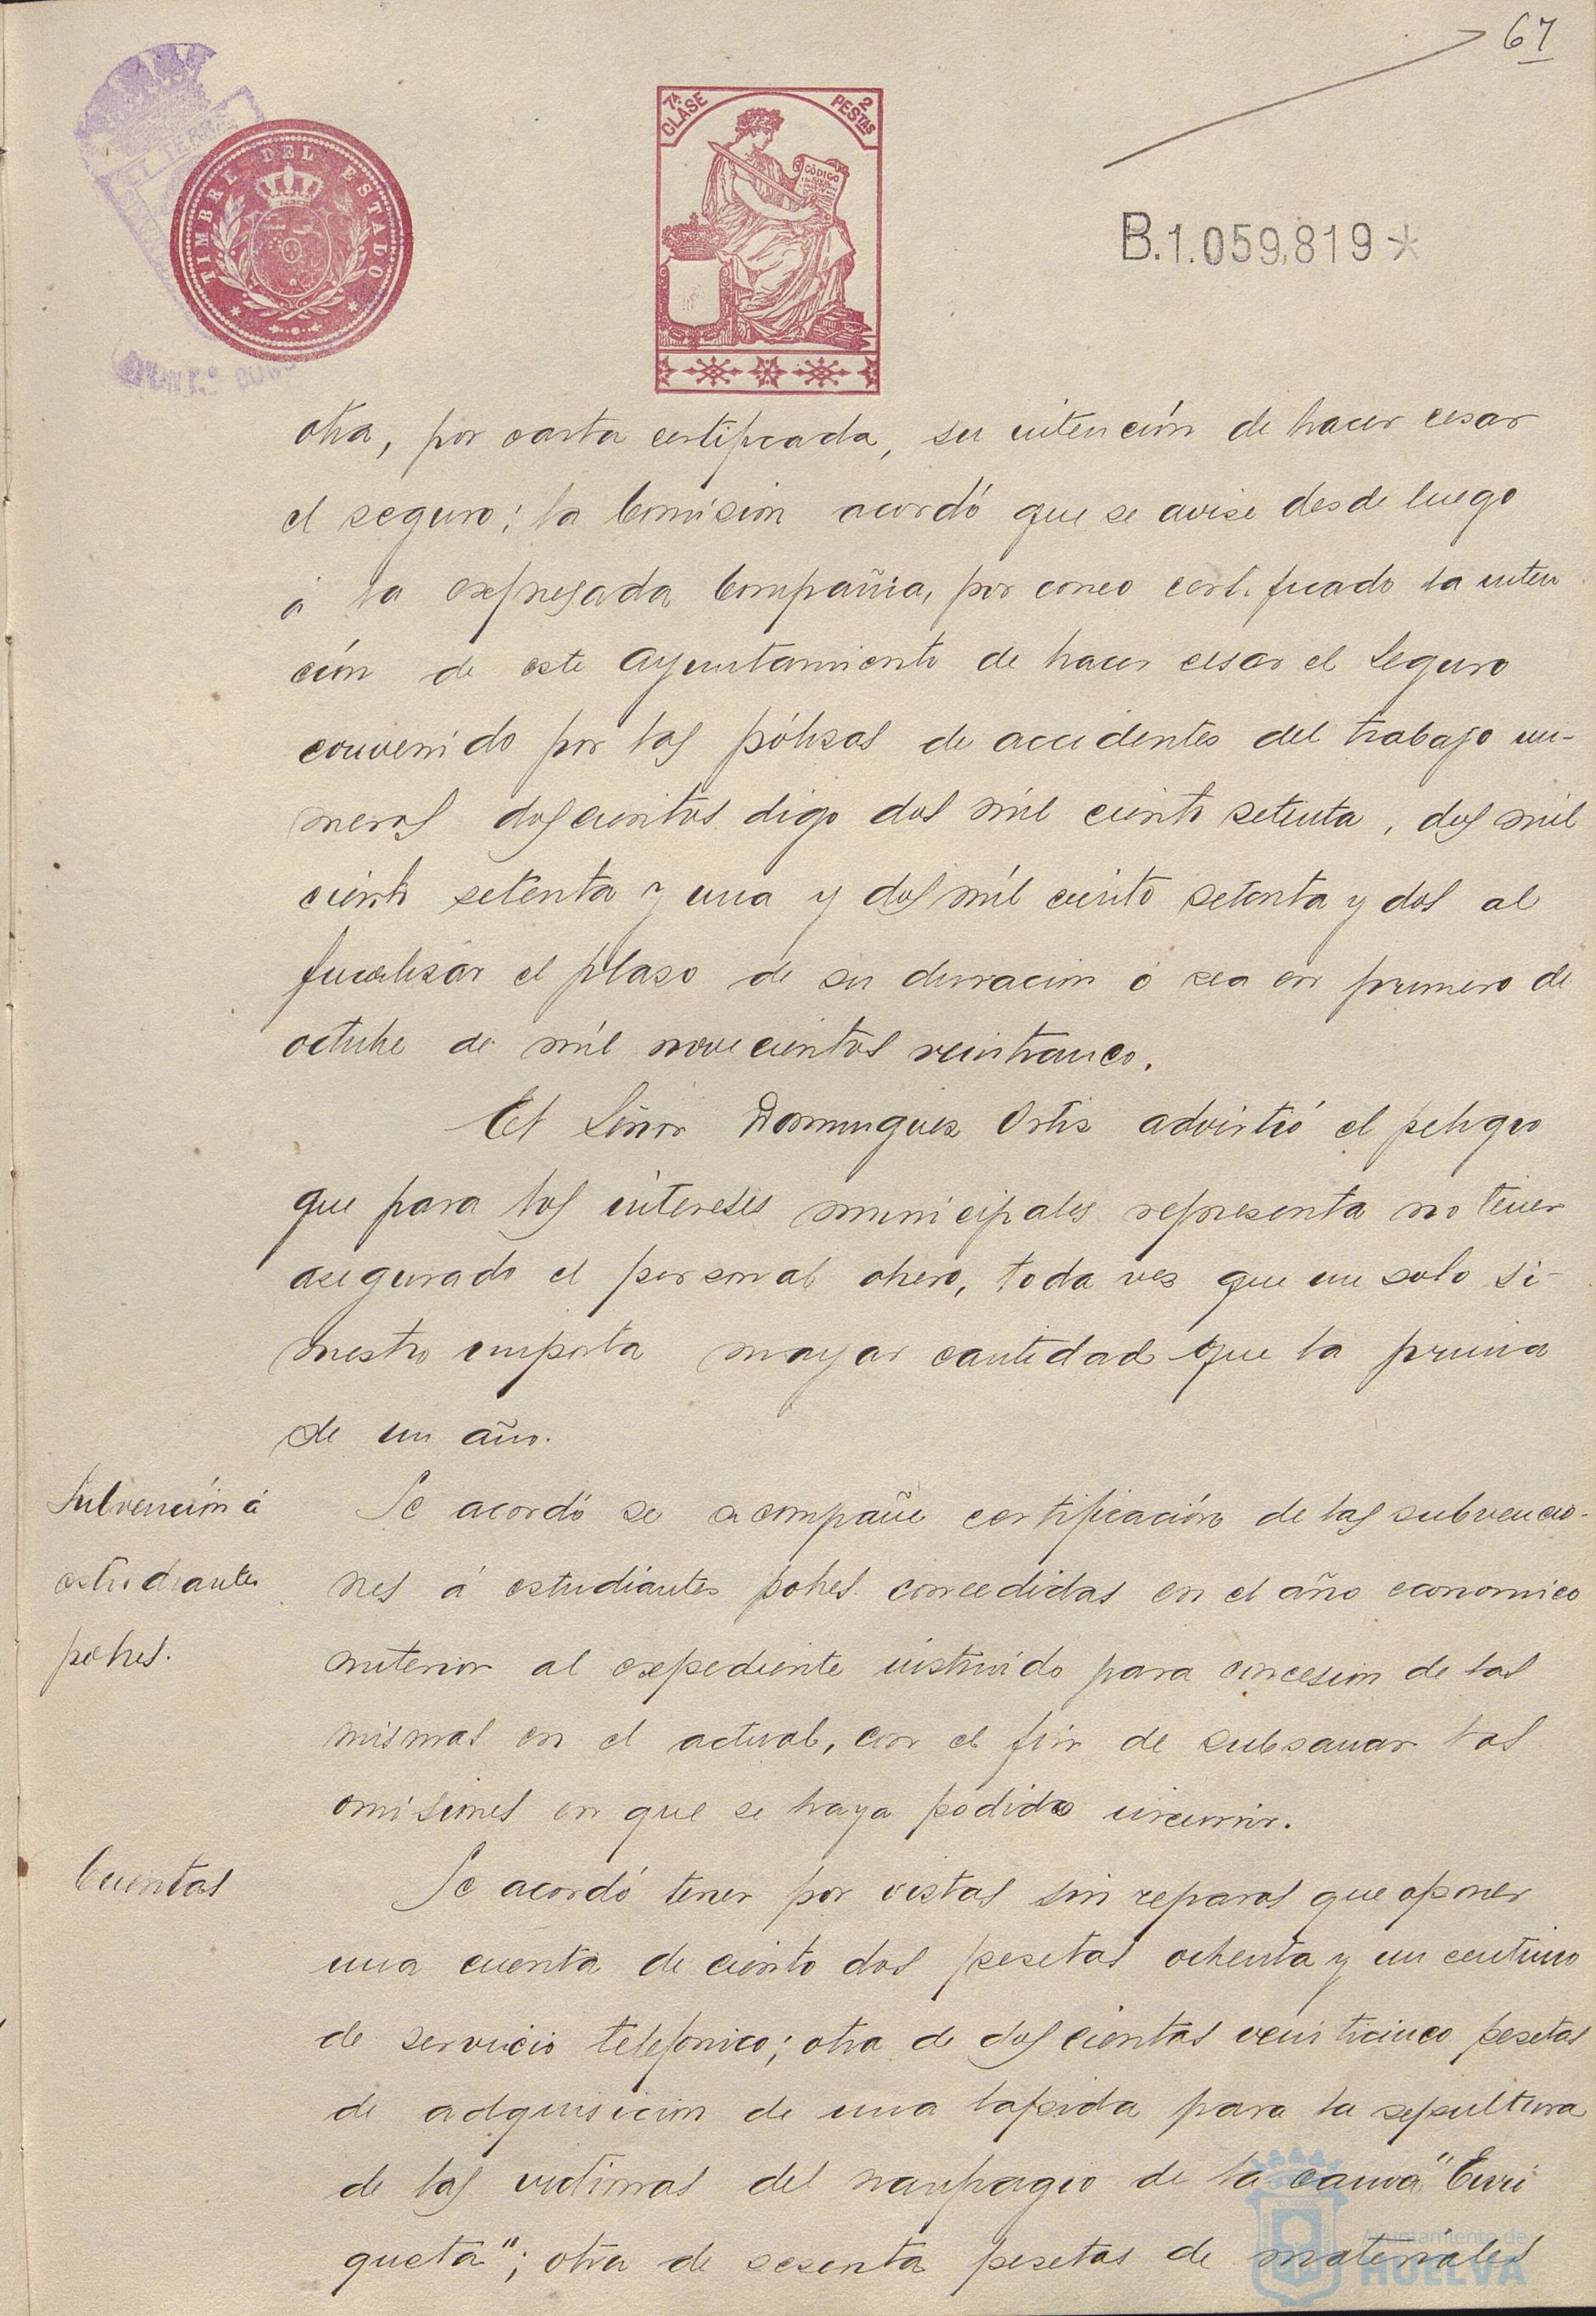 67
TIMBRE DEL ESTADO
7ª CLASE
2 PESTAS
CÓDIGO
B.1.059,819*
otra, por carta certificada, su intención de hacer cesar
el seguro; la Comisión acordó que se avise desde luego
á la expresada Compañia, por correo certificado la inten
ción de este Ayuntamiento de hacer cesar el Seguro
convenido por las pólizas de accidentes del trabajo nu-
meros doscientos digo dos mil ciento setenta, dos mil
ciento setenta y una y dos mil ciento setenta y dos al
finalizar el plazo de su duracion ó sea en primero de
octubre de mil novecientos veinticinco.
El Señor Dominguez Ortiz advirtió el peligro
que para los intereses municipales representa no tener
asegurado el personal obrero, toda vez que un solo si-
niestro importa mayor cantidad que la prima
de un año.
Subvención á
estudiantes
pobres.
Se acordó se acompañe certificación de las subvencio-
nes á estudiantes pobres concedidas en el año economico
anterior al expediente instruido para concesion de las
mismas en el actual, con el fin de subsanar las
omisiones en que se haya podido incurrir.
Cuentas
Se acordó tener por vistas sin reparos que oponer
una cuenta de ciento dos pesetas ochenta y un centimo
de servicio telefonico; otra de doscientas veinticinco pesetas
de adquisicion de una lapida para la sepultura
de las victimas del naufragio de la canoa "Enri
queta"; otra de sesenta pesetas de materiales
Ayuntamiento de
HUELVA